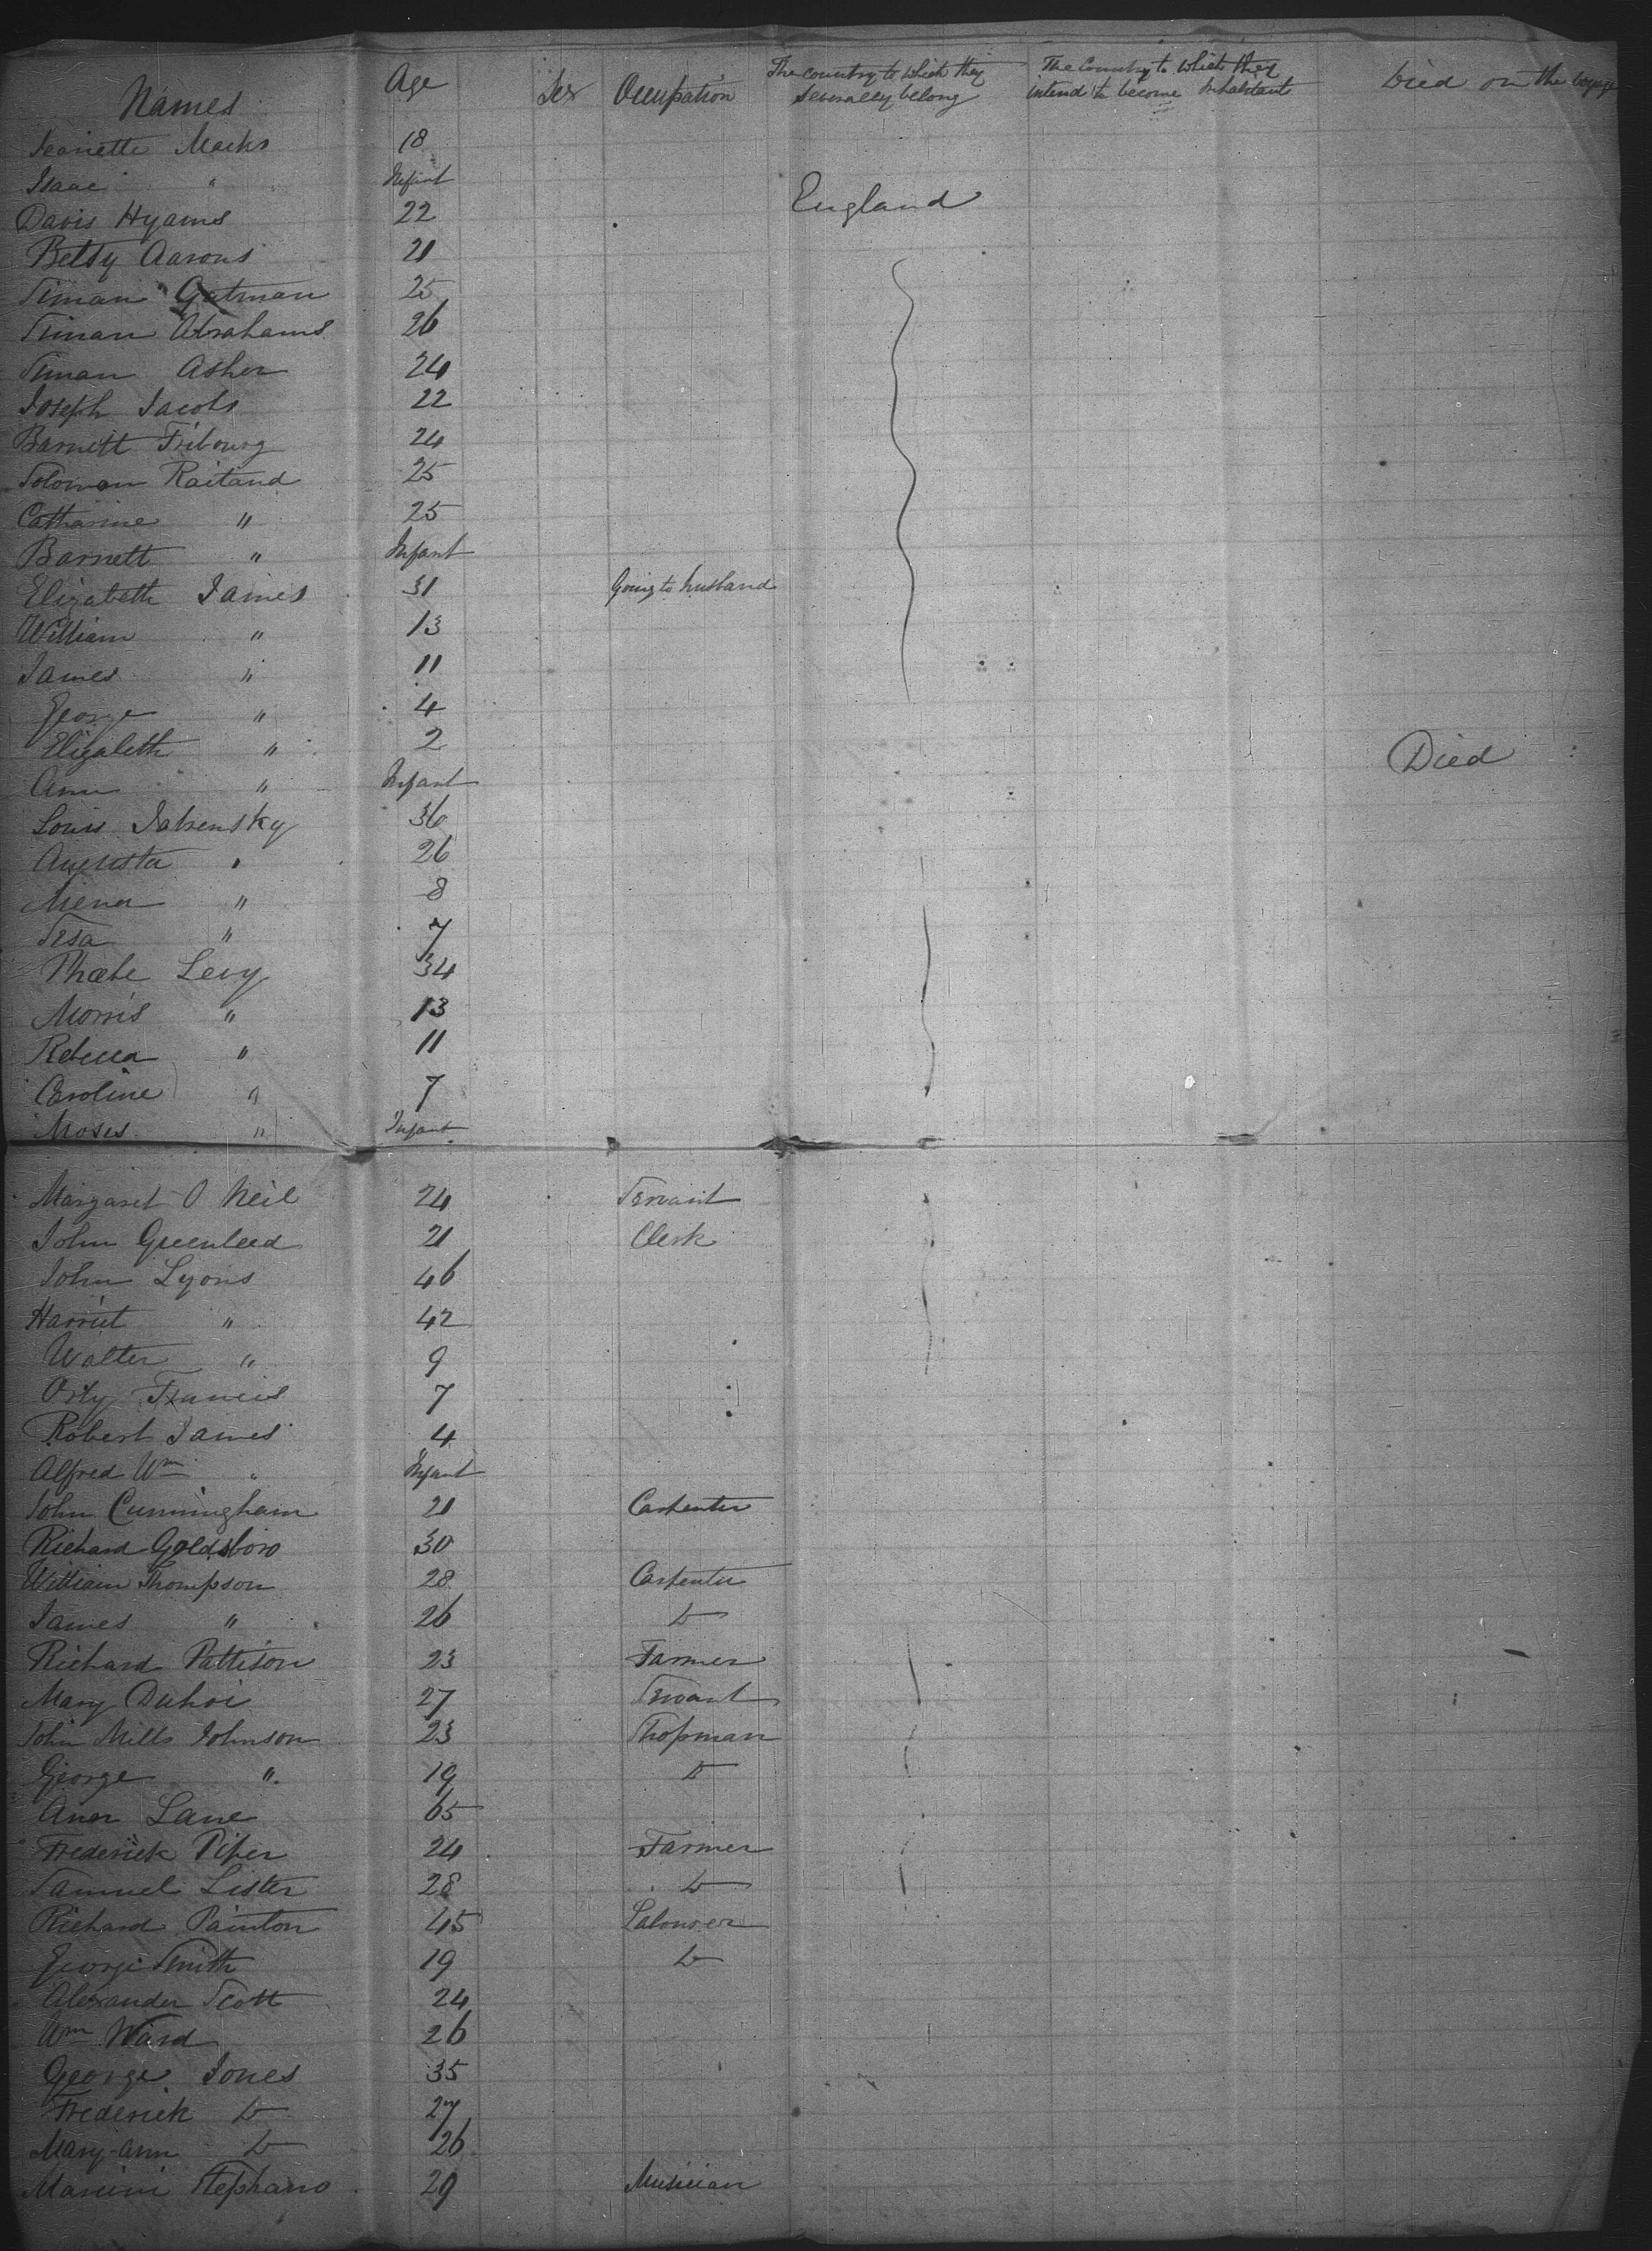 Names Age Sex Occupation The country to which they severally belong The Country to which they intend to become Inhabitants Died on the voyage
Jeanette Marks 18
Isaac " Infant
Davis Hyams 22 England
Betsy Aarons 21
Siman Gutman 25
Siman Abrahams 26
Siman Asher 24
Joseph Jacobs 22
Barnett Fribourg 24
Solomon Raitand 25
Catharine " 25
Barnett " Infant
Elizabeth James 31 Going to husband
William " 13
James " 11
George " 4
Elizabeth " 2 Died
Ann " Infant
Louis 36
Augusta " 26
Mena " 8
" 7
Phœbe Levy 34
Morris " 13
Rebecca " 11
Caroline " 7
Moses " Infant
Margaret O Neil 24 Servant
John 21 Clerk
John Lyons 46
Harriet " 42
Walter " 9
Francis 7
Robert James 4
Alfred Wm " Infant
John Cunningham 21 Carpenter
Richard Goldsboro 30
William Thompson 28 Carpenter
James " 26 Do
Richard Pattison 23 Farmer
Mary 27 Servant
John Mills Johnson 23 Shopman
George " 19 Do
Ann Lane 65
Frederick Piper 24 Farmer
Samuel Lister 28 Do
Richard Painton 45 Labourer
George Smith 19 Do
Alexander Scott 24
Wm Ward 26
George Jones 35
Frederick Do 27
Mary-ann Do 26
Stephano 29 Musician